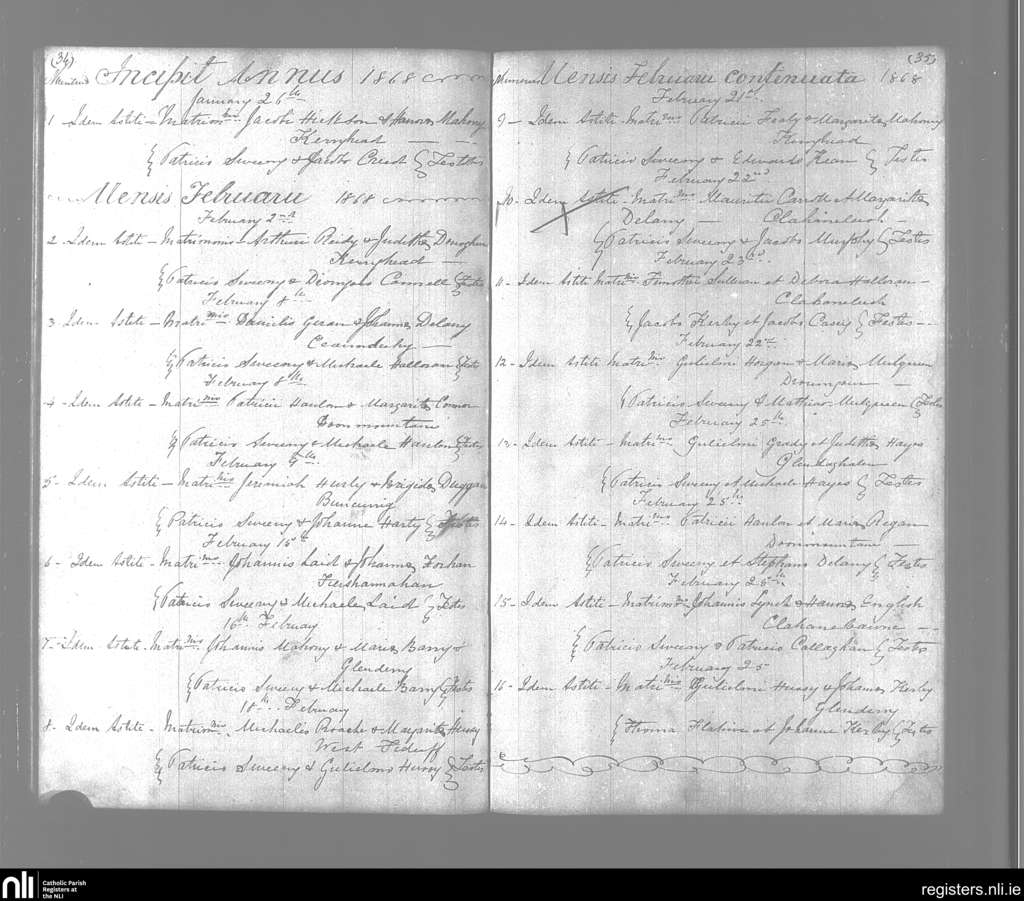 (34)
Incipit Annus 1868
January 26th
1 - Idem Astiti - Matrimo Jacobi Hickson & Hanora Mahony
Kerryhead
Patricio Sweeny & Jacobo Creed Testes
Mensis Februarii 1868
February 2nd
2 Idem Astiti - Matrimonio Arthuri Reidy & Judetha Donoghue
Kerryhead
Patricio Sweeny & Dionysio Connell Testes
February 8th
3 Idem Astiti - Matrimnio Danielis Geran & Johanna Delany
Patricio Sweeny & Michaele Halloran Testes
February 8th
4 - Idem Astiti - Matrimnio Patricii Hanlon & Margarita Connor
Boonmountain
Patricio Sweeny & Michaele Hanlon Testes
February 9th
5 - Idem Astiti - Matrimnio Jeremiah Hurly & Brigida Duggan
Patricio Sweeny & Johanne Harty Testes
February 15th
6 - Idem Astiti - Matrimo Johannis Laid & Johanna Forhan
Patricio Sweeny & Michaele Laid Testes
16th February
7 - Idem Astiti - Matrinio Johannis Mahony & Maria Barry
Glenderry
Patricio Sweeny & Michaele Barry Testes
18th February
8 - Idem Astiti - Matrimnio Michaelis Roache & Margarita Hussy
West Tiduff
Patricio Sweeny & Gulielmo Hussy Testes
(35)
Mensis Februarii Continuata 1868
February 21st
9 - Idem Astiti - Matrimo Patricii Healy & Margarita Mahony
Kerryhead
Patricio Sweeny & Edwardo Kean Testes
February 22nd
10 - Idem Astiti - Matrimo Mauritii Carroll & Margaritta
Delany - Clahaneleish -
Patricio Sweeny & Jacobo Murphy Testes
February 23rd
11 - Idem Astiti Matrinio Timothei Sullivan et Debora Halloran -
Clahaneleish
Jacobo Kerby et Jacobo Casey Testes
February 22nd
12 - Idem Astiti Matrinio Gulielmi Horgan & Maria Mulqueen
Patricio Sweeny & Mathias Mulqueen Testes
February 25th
13 - Idem Astiti - Matrimo Gulielmi Grady et Judetha Hayes
Patricio Sweeny et Michaele Hayes Testes
February 25th
14 - Idem Astiti - Matrimo Patricii Hanlon et Maria Regan
Boonmountain
Patricio Sweeny et Stephano Delany Testes
February 25th
15 - Idem Astiti - Matrimnio Johannis Lynch & Hanora English
Patricio Sweeny & Patricio Callaghan Testes
February 25
16 - Idem Astiti - Matrinio Gulielmi Hussy & Johanna Kerby
Glenderry
Flative et Johanne Kerby Testes
nli
Catholic Parish
Registers at
the NLI
registers.nli.ie